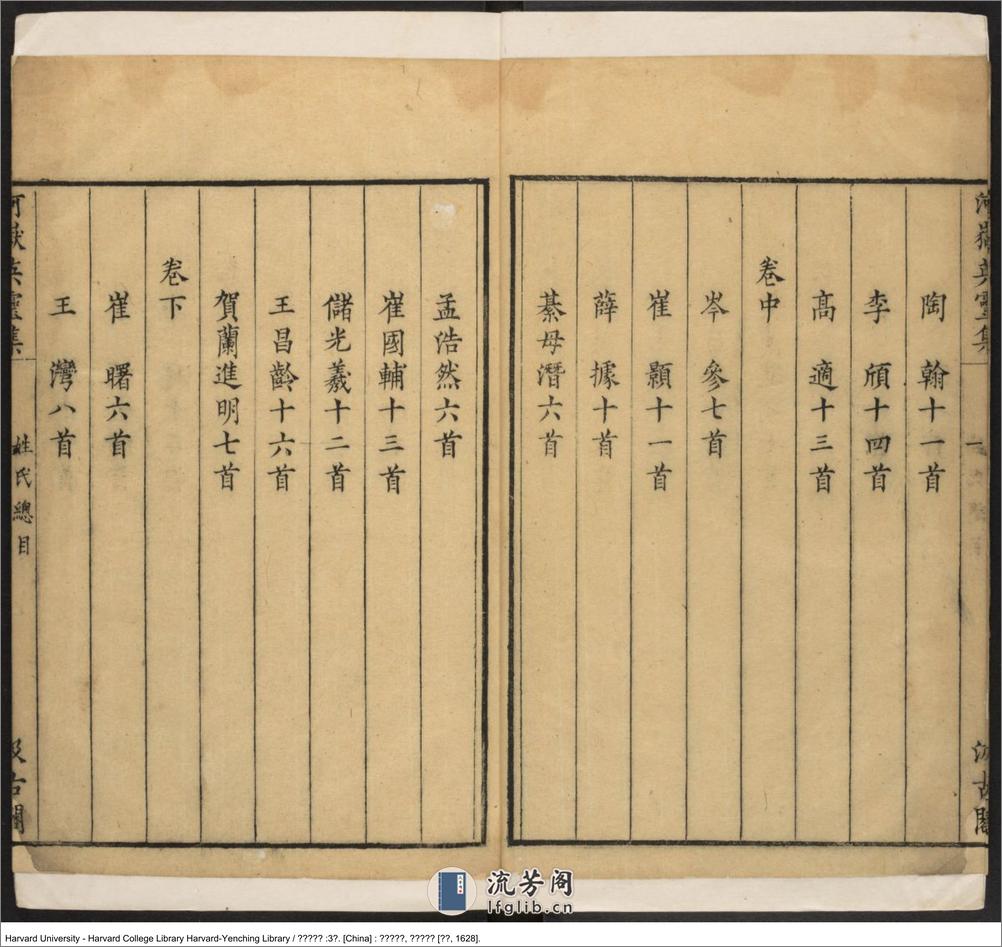 河嶽英靈集
一
汲古閣
陶翰十一首
李頎十四首
高適十三首
卷中
岑參七首
崔顥十一首
薛據十首
綦毋潛六首
孟浩然六首
崔國輔十三首
儲光羲十二首
王昌齡十六首
賀蘭進明七首
卷下
崔曙六首
王灣八首
河嶽英靈集
姓氏總目
汲古閣
流芳阁
lfglib.cn
Harvard University - Harvard College Library Harvard-Yenching Library / ????? :3?. [China] : ?????, ????? [??, 1628].